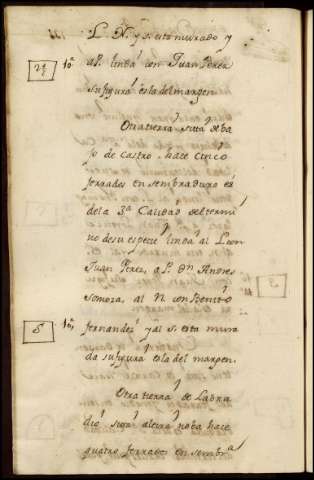 L. N. y s. esta murado y
al P. linda con Juan Perez
su figura es la del margen
Otra tierra sita de ba
jo de Castro, hace Cinco
ferrados en sembradura es
de la 3ª Calidad del termi
no de su especie linda al L. con
Juan Perez, a P. Dn. Andres
Somoza, al N. con Benito
10ⁿ fernandez y al s. esta mura
da su figura es la del margen.
5
Otra tierra de Labra
dio
quatro ferrados en sembra